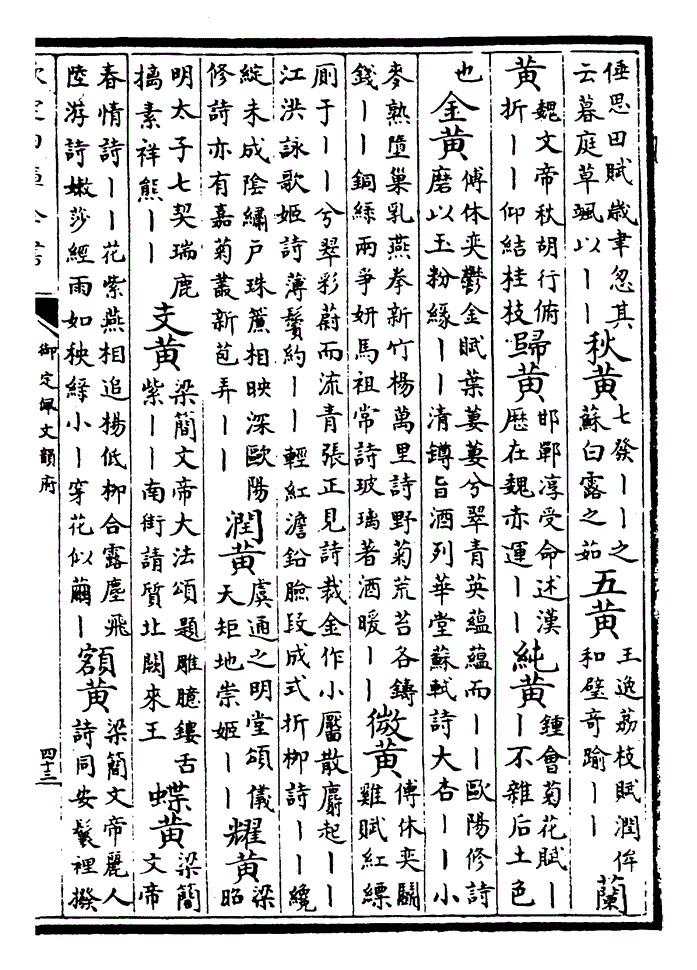 倕思田賦歲聿忽其云暮庭草颯以｜｜秋黄七發｜｜之蘇白露之茹五黄王逸荔枝賦潤侔和璧奇踰｜｜蘭
黄魏文帝秋胡行俯折｜｜仰結桂枝歸黄邯鄲淳受命述漢歴在魏赤運｜｜純黄鍾會菊花賦｜｜不雜后土色
也金黄傅休奕鬱金賦葉萋萋兮翠青英藴藴而｜｜歐陽修詩磨以玉粉緣｜｜清罇旨酒列華堂蘇軾詩大杏｜｜小
麥熟墮巢乳燕拳新竹楊萬里詩野菊荒苔各鑄錢｜｜銅緑兩爭妍馬祖常詩玻璃著酒暖｜｜微黄傅休奕鬭雞賦紅縹
厠于｜｜兮翠彩蔚而流青張正見詩裁金作小靨散麝起｜｜江洪詠歌姬詩薄鬢約｜｜輕紅澹鉛臉段成式折栁詩｜｜纔
綻未成陰繡戶珠簾相映深歐陽修詩亦有嘉菊叢新苞弄｜｜潤黄虞通之明堂頌儀天矩地崇姬｜｜耀黄梁昭
明太子七契瑞鹿摛素祥熊｜｜支黄梁簡文帝大法頌題雕臆鏤舌紫｜｜南街請質北闕來王蝶黄梁簡文帝
春情詩｜｜花紫燕相追楊低栁合露塵飛陸游詩嫩莎經雨如秧緑小｜穿花似繭｜額黄梁簡文帝麗人詩同安鬟裡撥
欽定四庫全書
御定佩文韻府
四十三